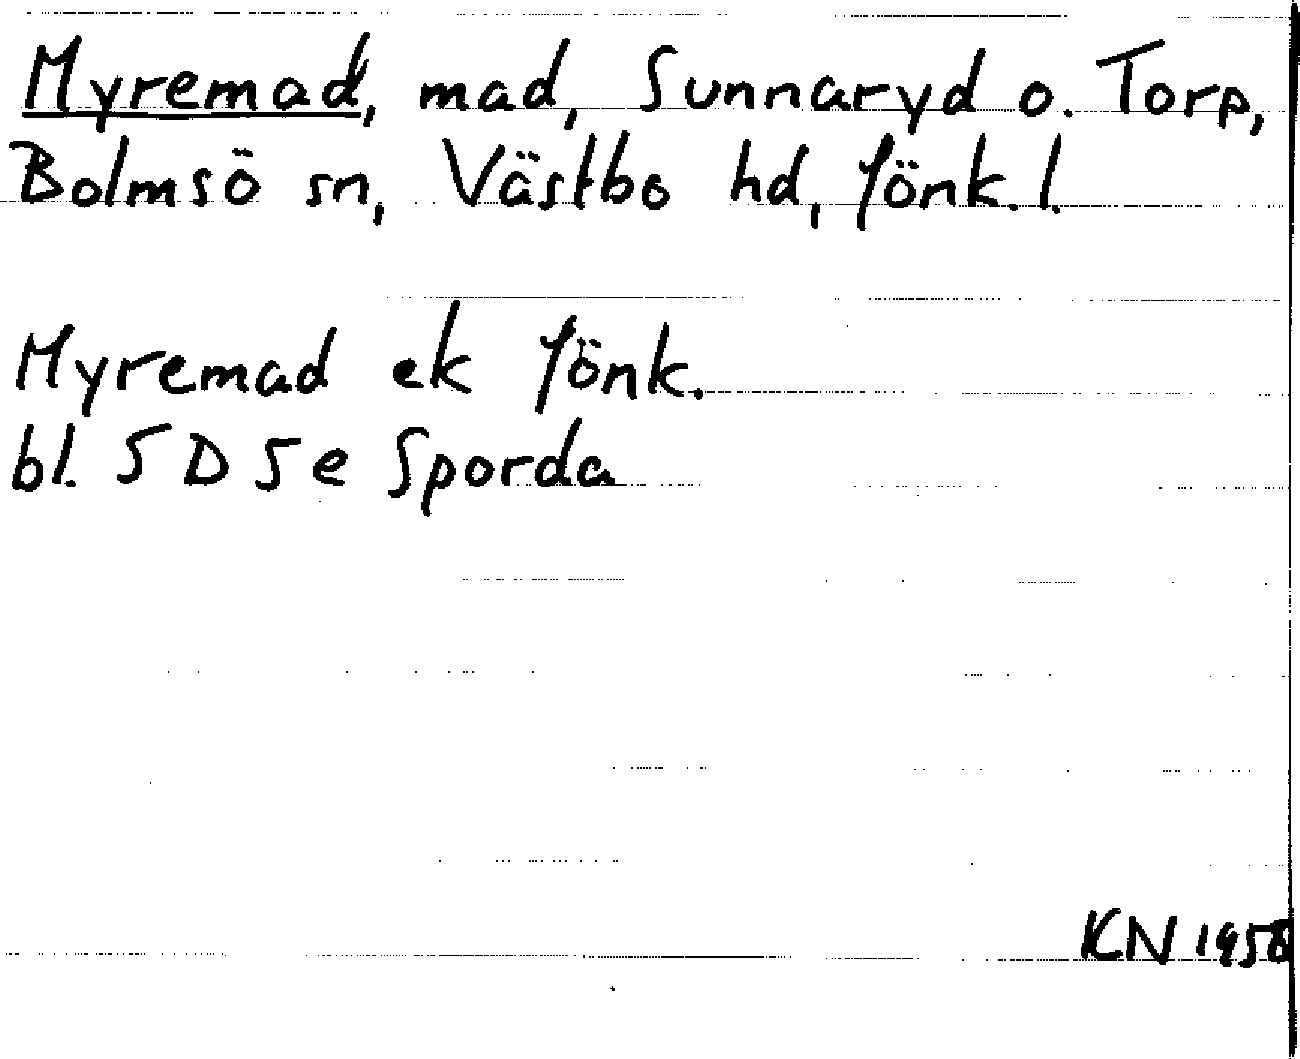 Myremad, mad, Sunnaryd o. Torp,
Bolmsö sn, Västbo hd, Jönk. l.
Myremad ek Jönk.
bl. 5 D 5 e Sporda
KN 1958